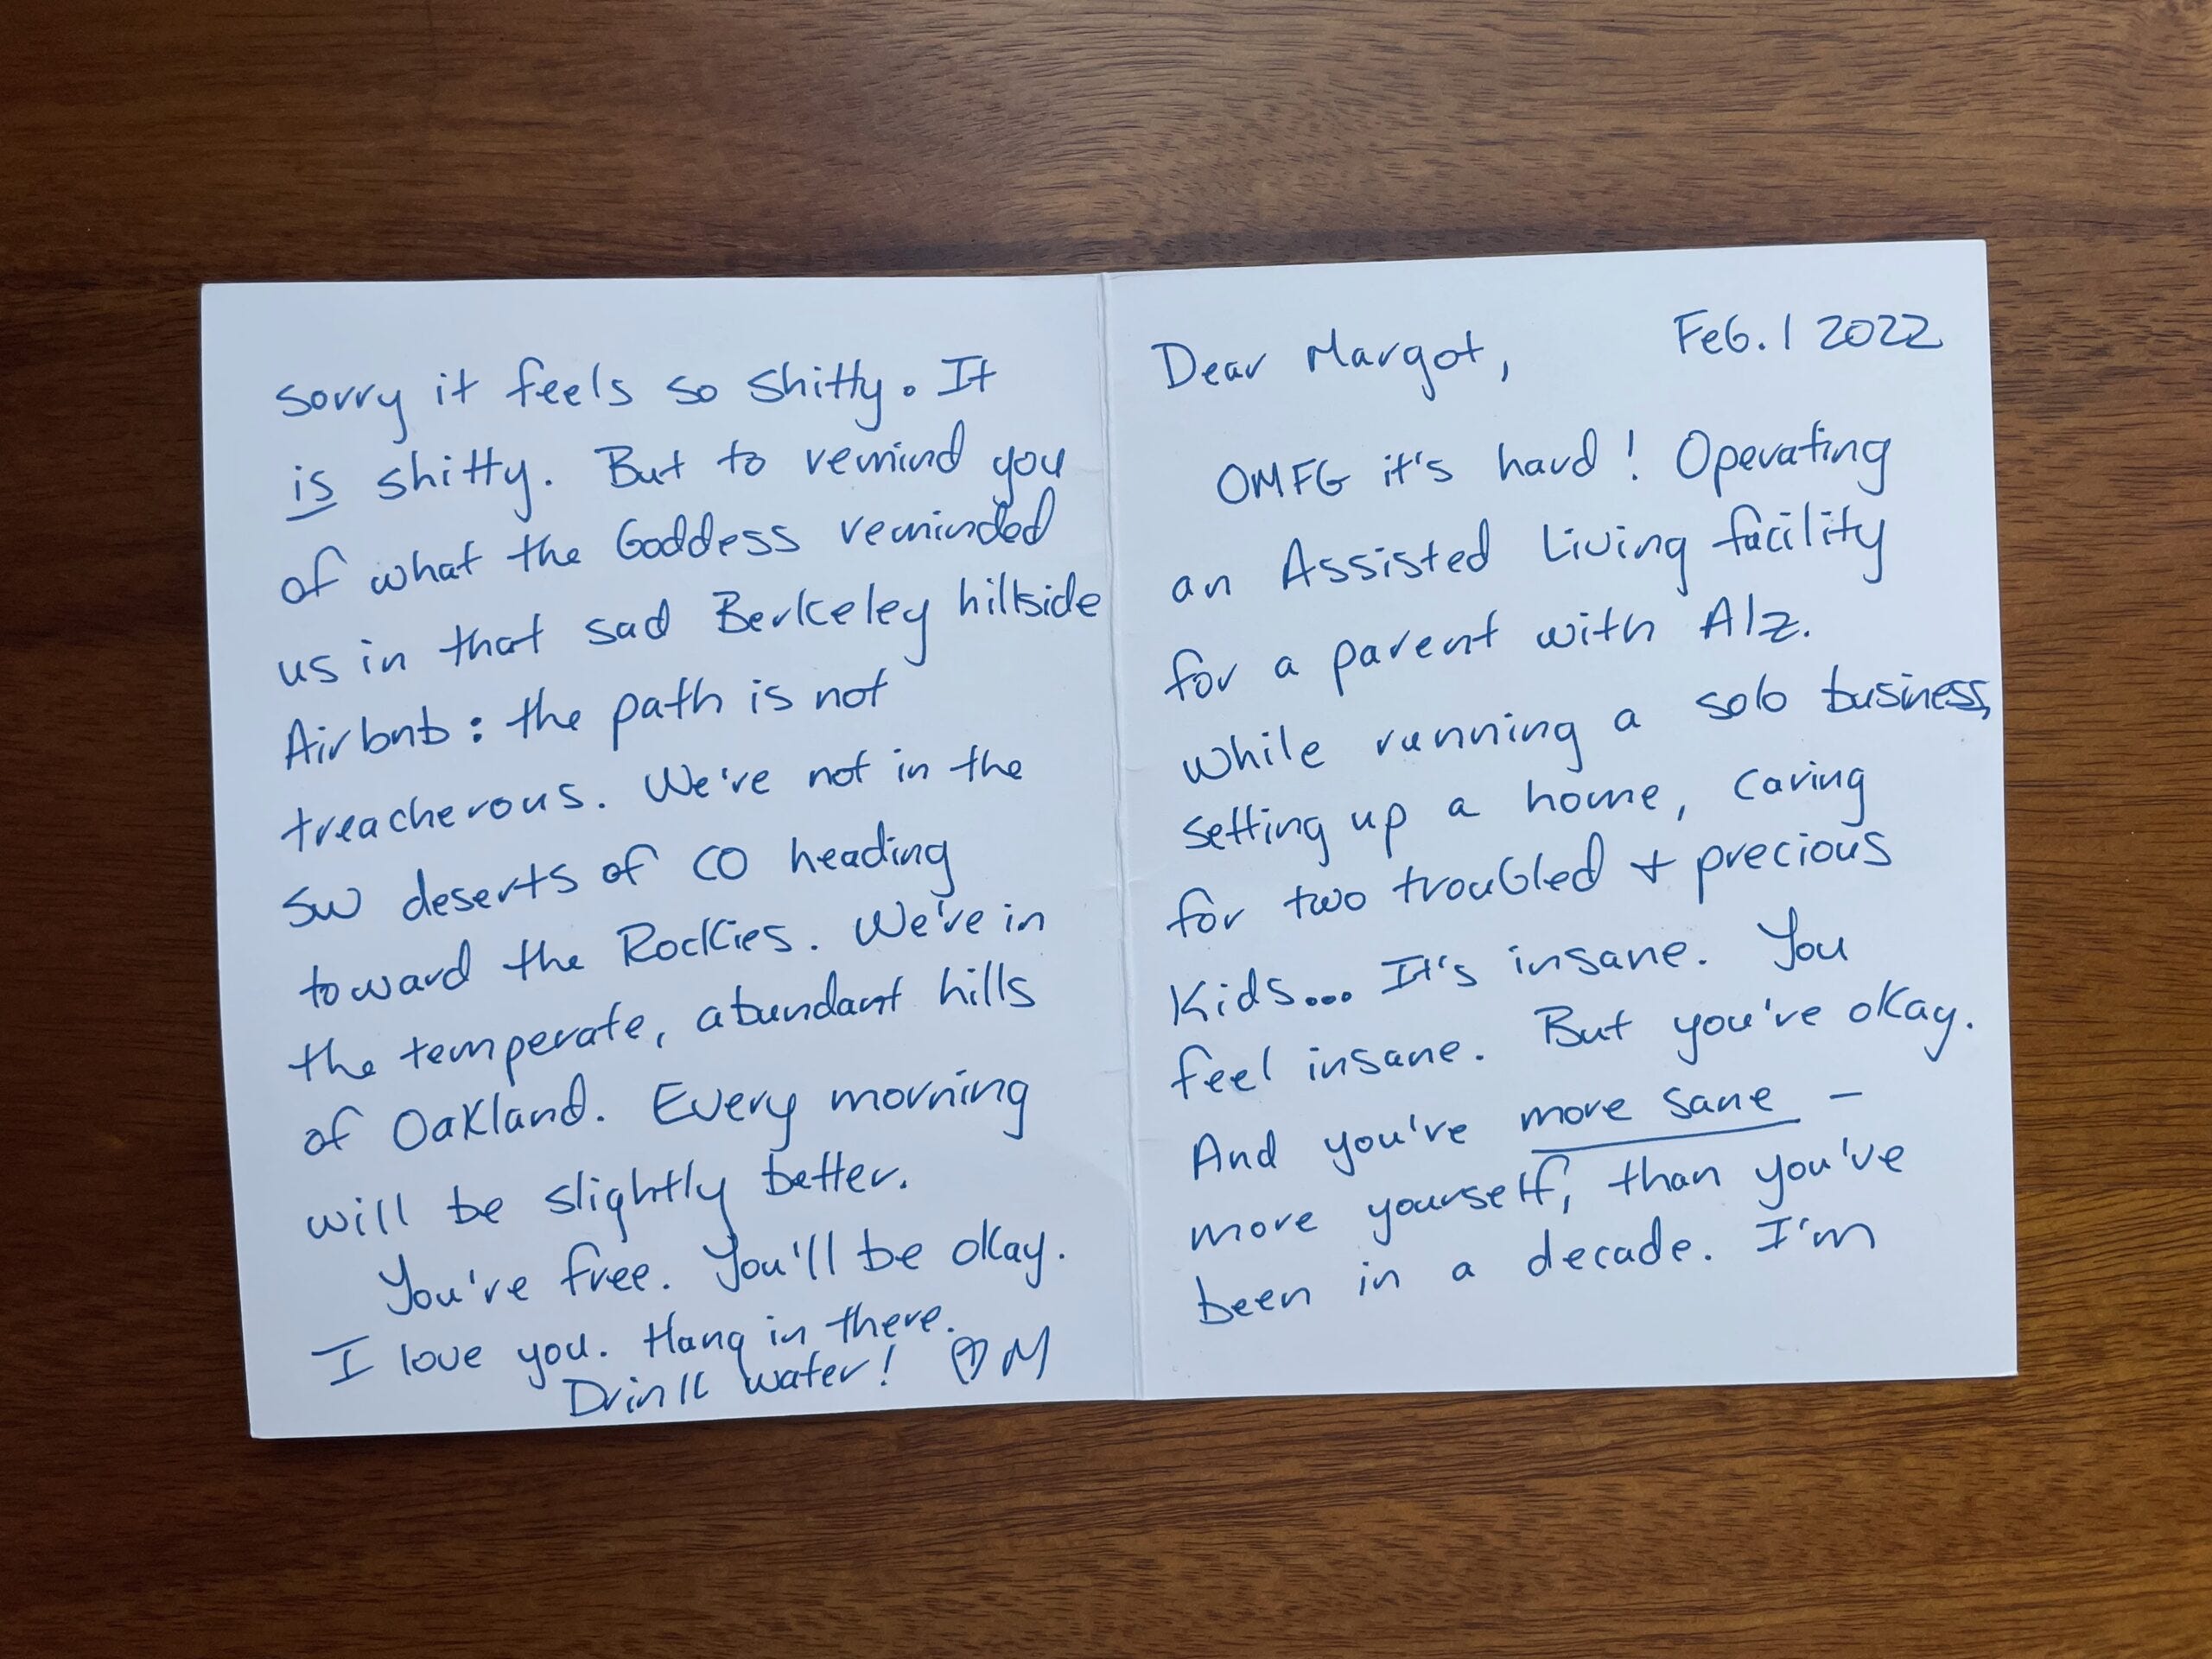 Feb. 1 2022
Dear Margot,
OMFG it's hard! Operating
an Assisted Living facility
for a parent with Alz.
while running a solo business,
setting up a home, caring
for two troubled + precious
Kids... It's insane. You
feel insane. But you've okay.
And you've more sane –
more yourself, than you've
been in a decade. I'm
sorry it feels so shitty. It
is shitty. But to remind you
of what the Goddess reminded
us in that sad Berkeley hillside
Airbnb: the path is not
treacherous. We're not in the
SW deserts of CO heading
toward the Rockies. We're in
the temperate, abundant hills
of Oakland. Every morning
will be slightly better.
You're free. You'll be okay.
I love you. Hang in there.
Drink water! ♡ M